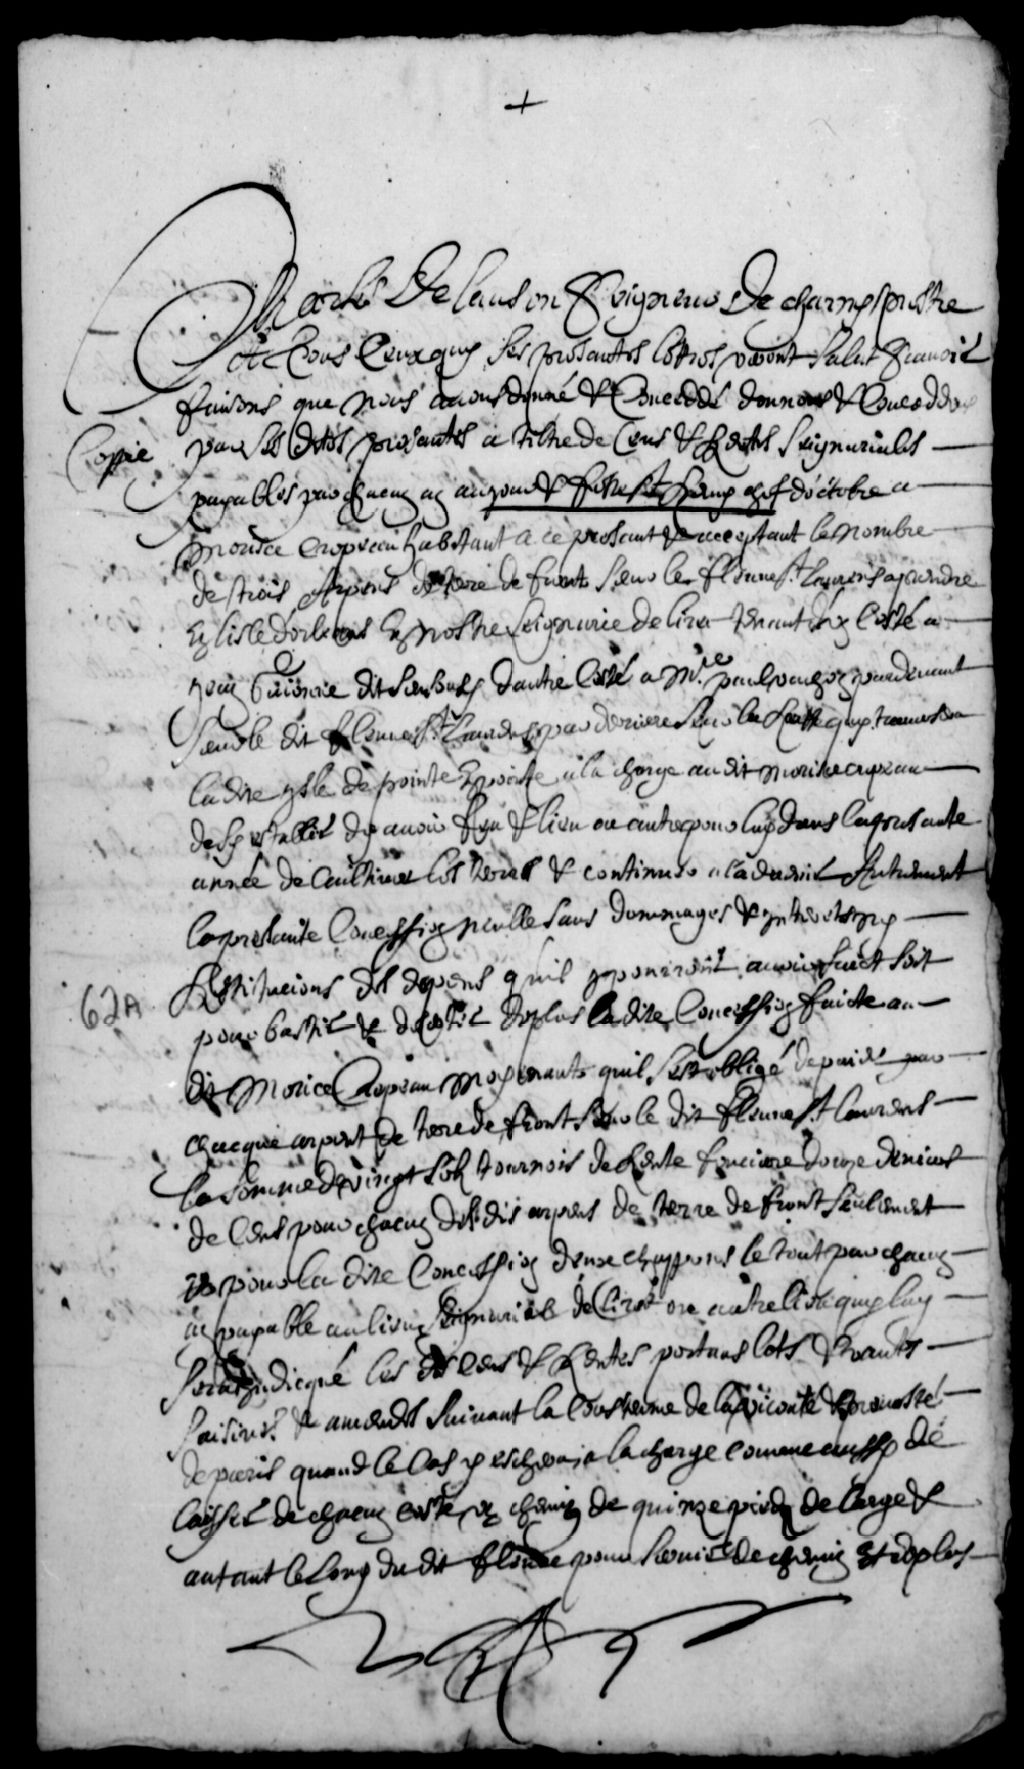 +
Charles De Lauson Seigneur De Charny prestre
A tous Ceux quy Ses presantes lettres verront Salut Scauoir
faisons que Nous auons donné & Conceddé donnons & Conceddons
Coppie
par Ses dites presantes a tiltre de Cens & Rentes Seigneurialles
payables par chacun an au jour & feste St Remy chef d'octobre a
Morice Cropeau habitant a ce presant & acceptant le nombre
de trois Arpens de terre de front Seur le fleuue St Laurens a prendre
En lisle dorleans En nostre Seigneurie de Liret tenant d'un Costé a
dit dautre Costé a Mre paul par deuant
Seur le dit fleuue St Laurens par deriere Seur la Routte quy trauersera
la dite isle de pointe En pointe a la charge au dit Morice cropeau
de Sy establir dy auoir feu & lieu ou autre pour luy dans la presante
année de Cultiuer les terres & continuer a laduenir Autrement
la presante Concession nulle Sans dommages & interets ny
Restitucions des depens quil y pouroit auoir faict Soit
62A
pour bastir & deplus la dite Concession faicte au
dit Morice Cropeau Moyenant quil Sest obligé de paier par
chacque arpent de terre de front Seur le dit fleuue St Laurens
la Somme de vingt Solz tournois de Rente fonciere douze deniers
de Cens pour chacun desdis arpens de terre de front Seulement
& pour la dite Concession deux chappons le tout par chacun
an payable au lieu Seigneurial de Liret ou autre lieu quy luy
Sera indicqué les dis Cens & Rentes portans lots & ventes
Saisines & amendes Suiuant la Coustume de la viconté & preuosté
de paris quand le Cas y eschera a la charge comme aussy de
laisser de chacun costé un chemin de quinze pieds de large &
autant le long du dit fleuue pour Seruir de chemin Et deplus